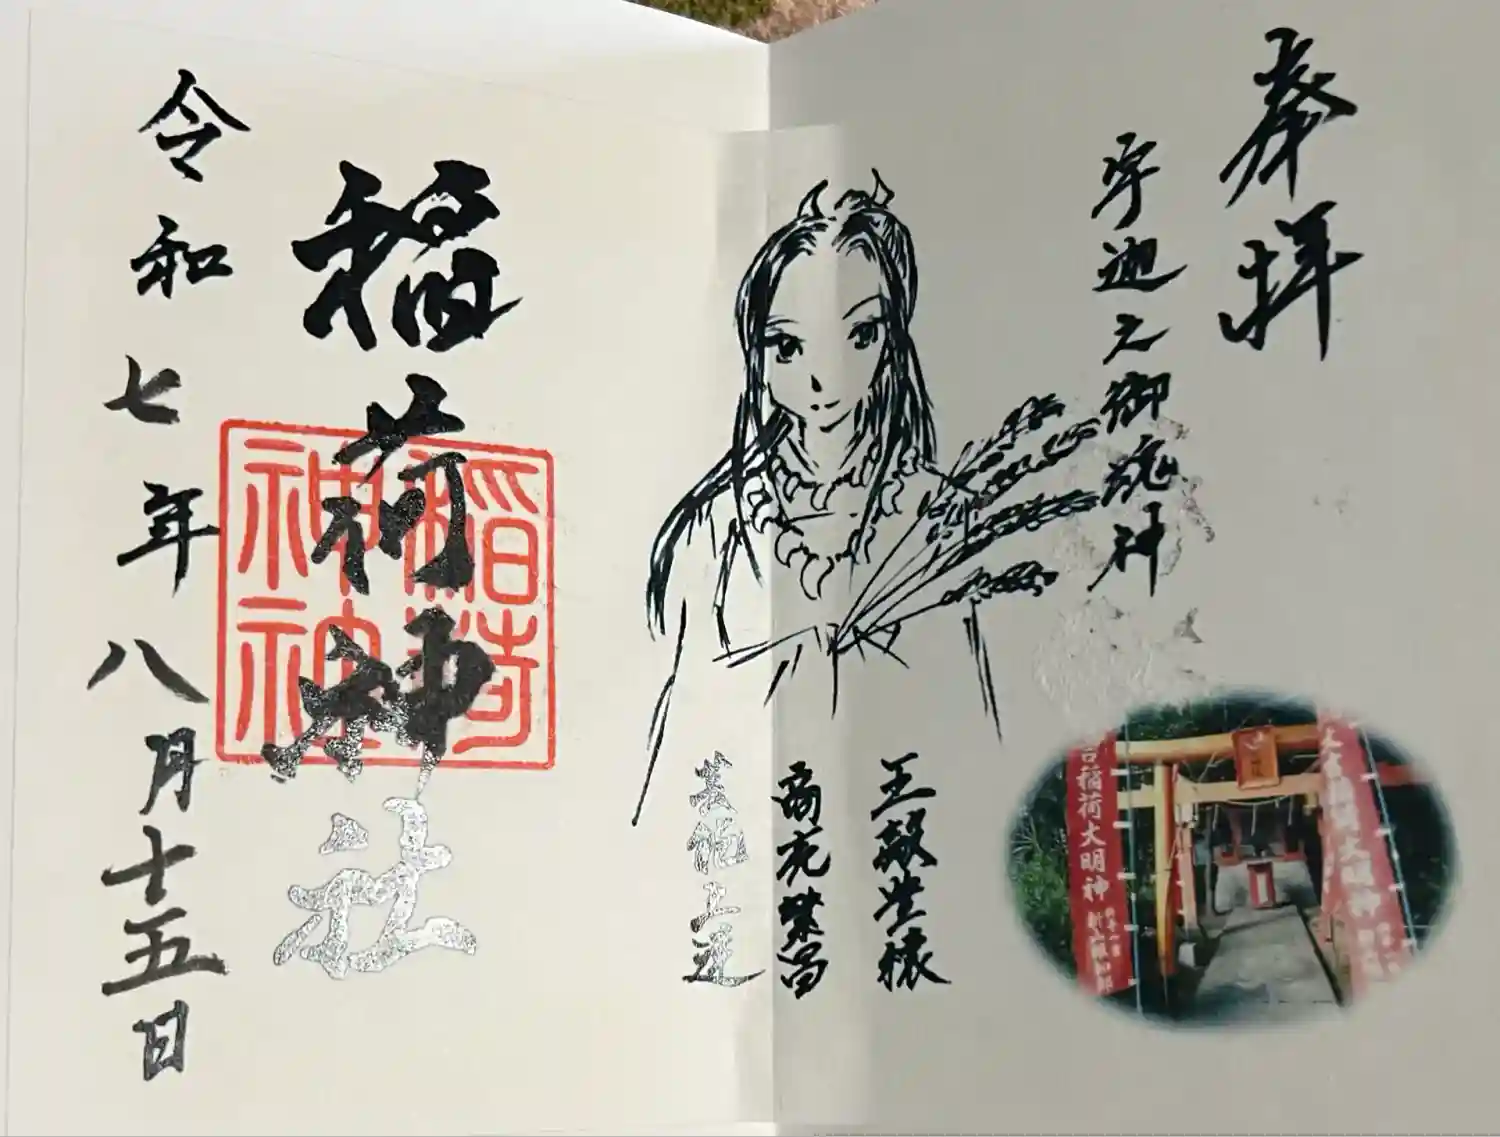 奉拝
宇迦之御魂神
五穀豊穣
商売繁昌
芸能上達
稲荷神社
令和七年八月十五日
稲荷
神社
稲荷大明神
大明神